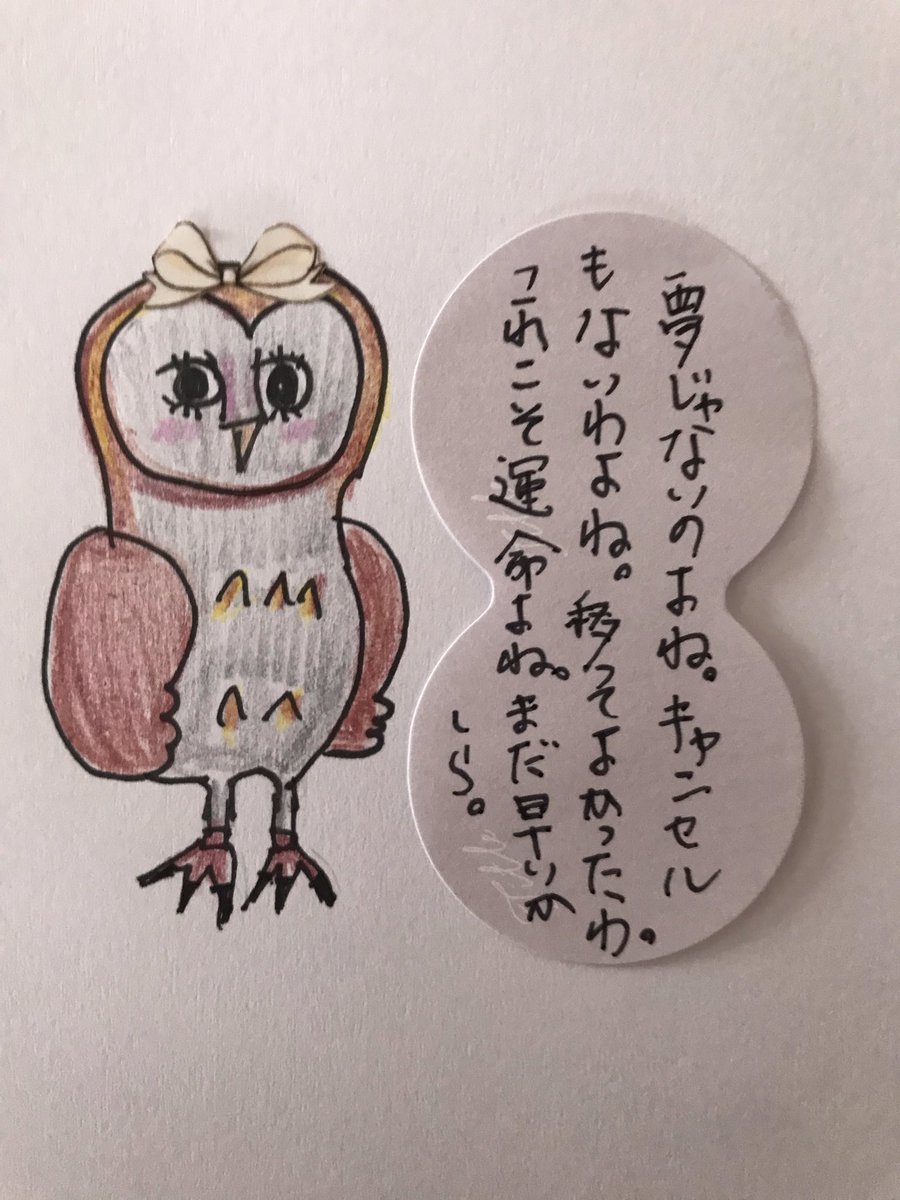 夢じゃないのよね。キャンセル
もないわよね。移ってよかったわ。
これこそ運命よね。まだ早いか
しら。